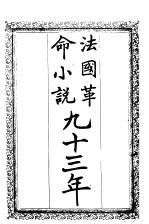 法國革
命小説
九十三年